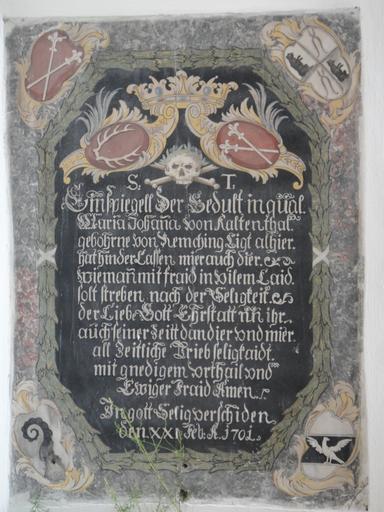 S. T.
Ein spiegell Der Gedult in qual
Maria Johaña von Kaltenthal.
gebohrne von Remching Ligt alhier.
hat hinder Lassen mier auch dier.
Wie mañ mit fraid in vilem Laid.
solt streben nach der Seligkeit.
der Liebe Gott Erstatt ihr.
auch seiner Zeitt dan dier vnd mier
all Zeitliche Trieb seligkaidt.
mit gnedigem vrthail vnd
Ewiger Fraid Amen.
In gott Selig verschiden
den XXI Feb: A: 1701.